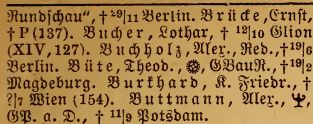 Rundschau“, † 29/11 Berlin. Brücke, Ernst,
† P (137). Bucher, Lothar, † 12/10 Glion
(XIV, 127). Buchholz, Alex., Red., † 19/6
Berlin. Büte, Theod., GBauR., † 19/2
Magdeburg. Burkhard, K. Friedr., †
?/7 Wien (154). Buttmann, Alex.,
GP. a. D., † 11/9 Potsdam.